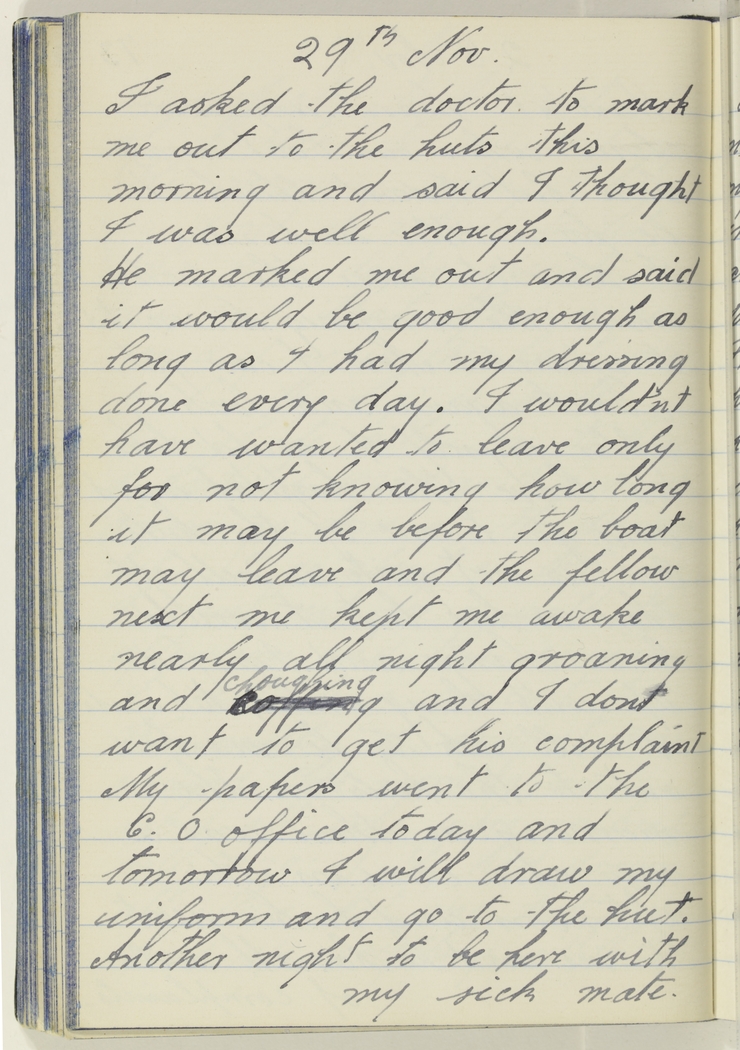 29th Nov.
I asked the doctor to mark
me out to the huts this
morning and said I thought
I was well enough.
He marked me out and said
it would be good enough as
long as I had my dressing
done every day. I wouldn't
have wanted to leave only
for not knowing how long
it may be before the boat
may leave and the fellow
next me kept me awake
nearly all night groaning
choughing
and and I dont
want to get his complaint
My papers went to the
C. O. office today and
tomorrow I will draw my
uniform and go to the hut.
Another night to be here with
my sick mate.